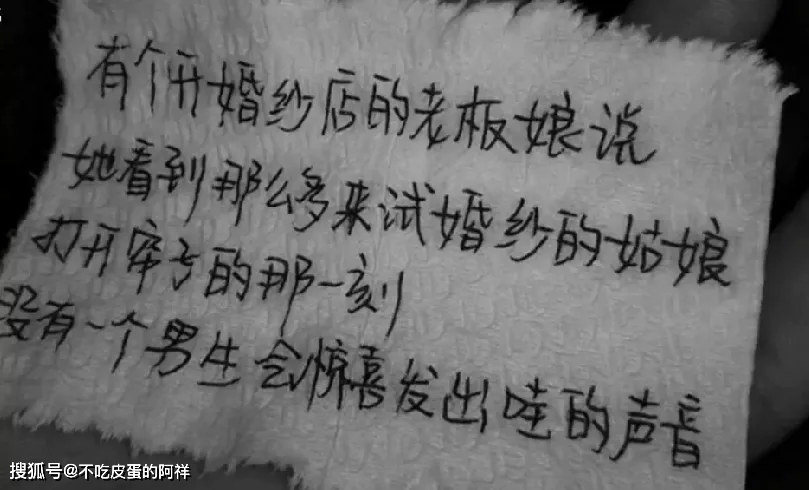 有个开婚纱店的老板娘说
她看到那么多来试婚纱的姑娘
打开帘子的那一刻
没有一个男生会惊喜发出哇的声音
搜狐号@不吃皮蛋的阿祥